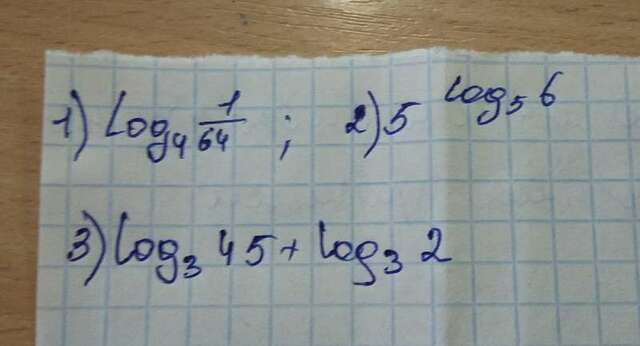 1) log₄ 1/64 ; 2) 5^log₅6
3) log₃ 45 + log₃ 2